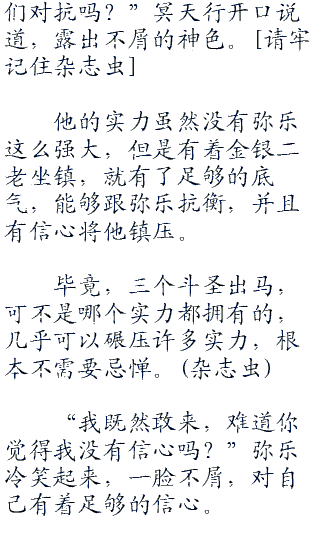 们对抗吗？”冥天行开口说
道，露出不屑的神色。[请牢
记住杂志虫]
他的实力虽然没有弥乐
这么强大，但是有着金银二
老坐镇，就有了足够的底
气，能够跟弥乐抗衡，并且
有信心将他镇压。
毕竟，三个斗圣出马，
可不是哪个实力都拥有的，
几乎可以碾压许多实力，根
本不需要忌惮。(杂志虫)
“我既然敢来，难道你
觉得我没有信心吗？”弥乐
冷笑起来，一脸不屑，对自
己有着足够的信心。